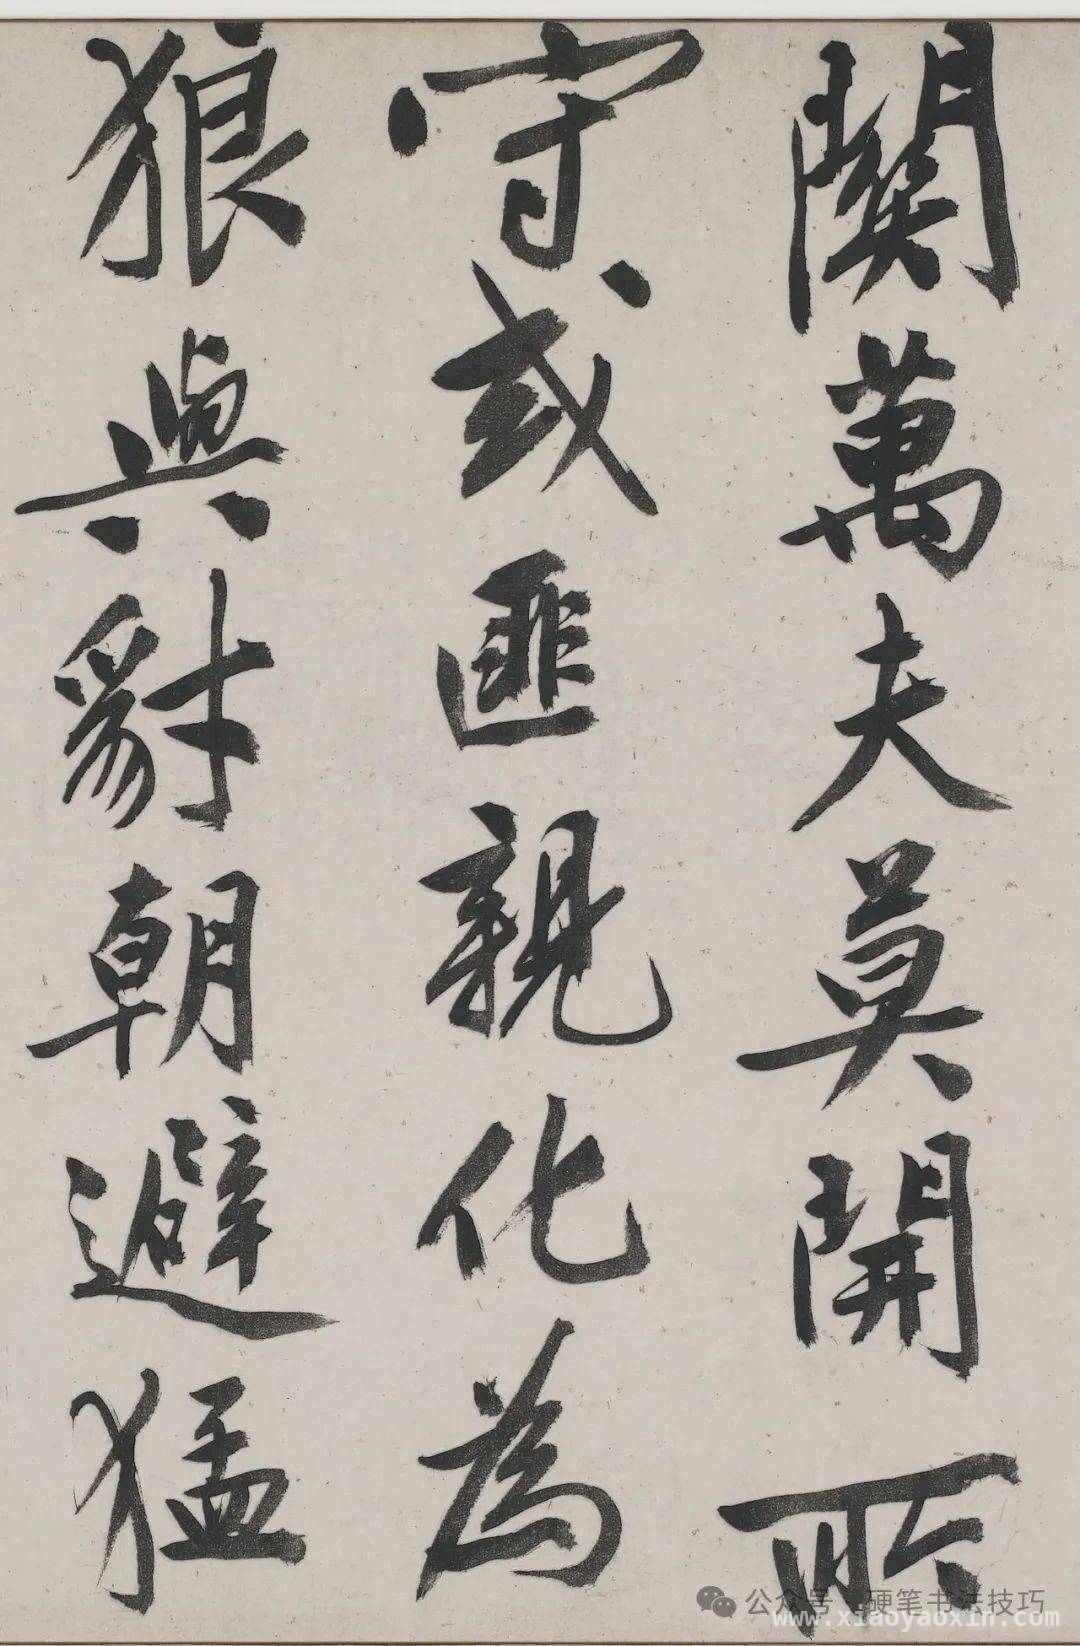 關萬夫莫開所
守或匪親化為
狼與豺朝避猛
公众号 · 硬笔书法技巧
www.xiaoyaoxin.com